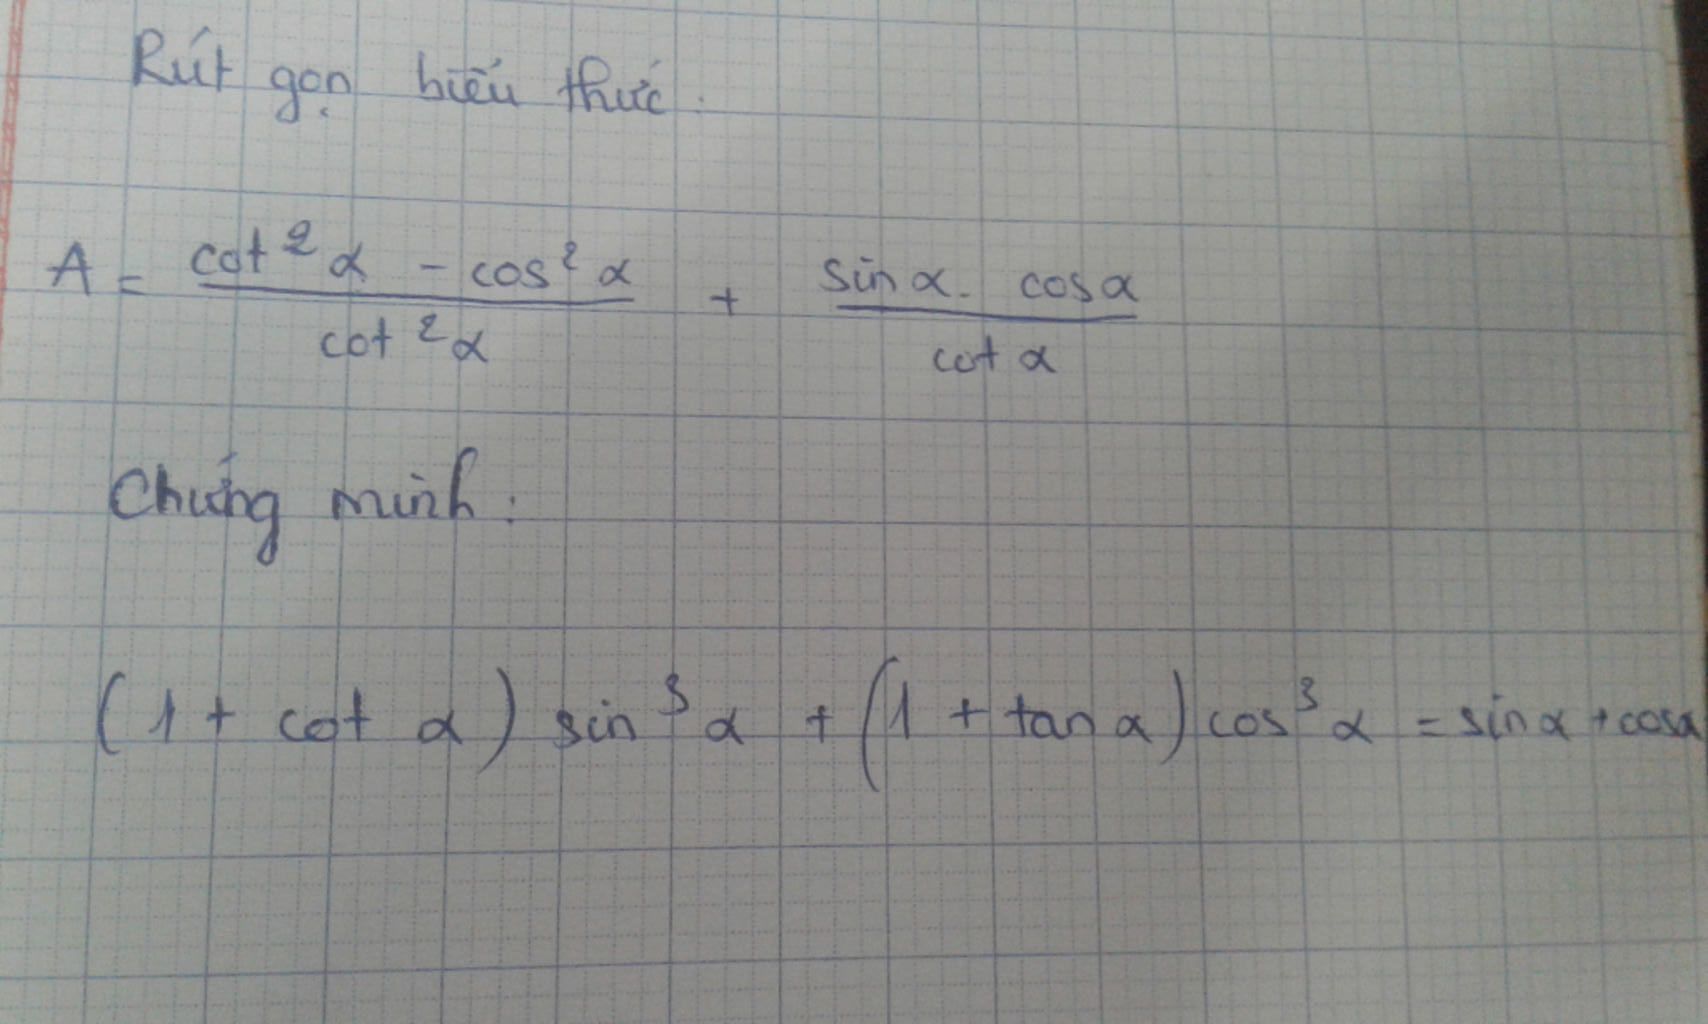 Rút gọn biểu thức.
A = \frac{cot²α - cos²α}{cot²α} + \frac{sinα. cosα}{cot α}
Chứng minh:
(1 + cot α) sin³α + (1 + tan α) cos³α = sinα + cosα